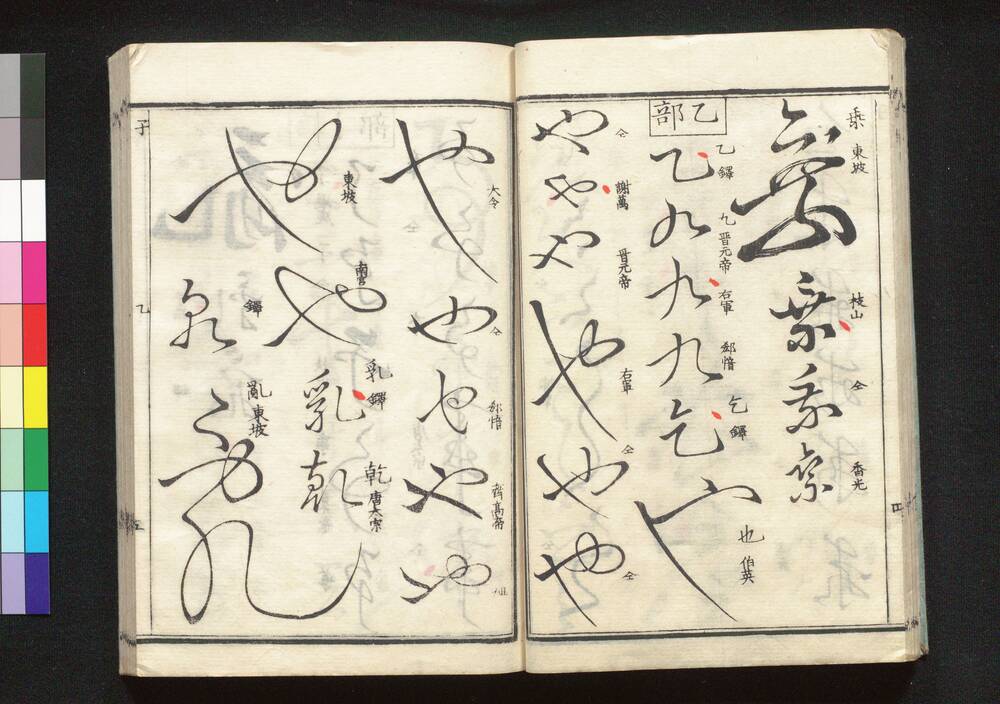 乗 東坡
枝山
仝
香光
乙部
乙 鐸
九 晋元帝
右軍
郄愔
乞 鐸
也 伯英
仝
謝萬
晋元帝
右軍
仝
仝
大令
仝
郄愔
齊高帝
東坡
南宮
乳 鐸
乾 唐太宗
鐸
亂 東坡
子
乙
四